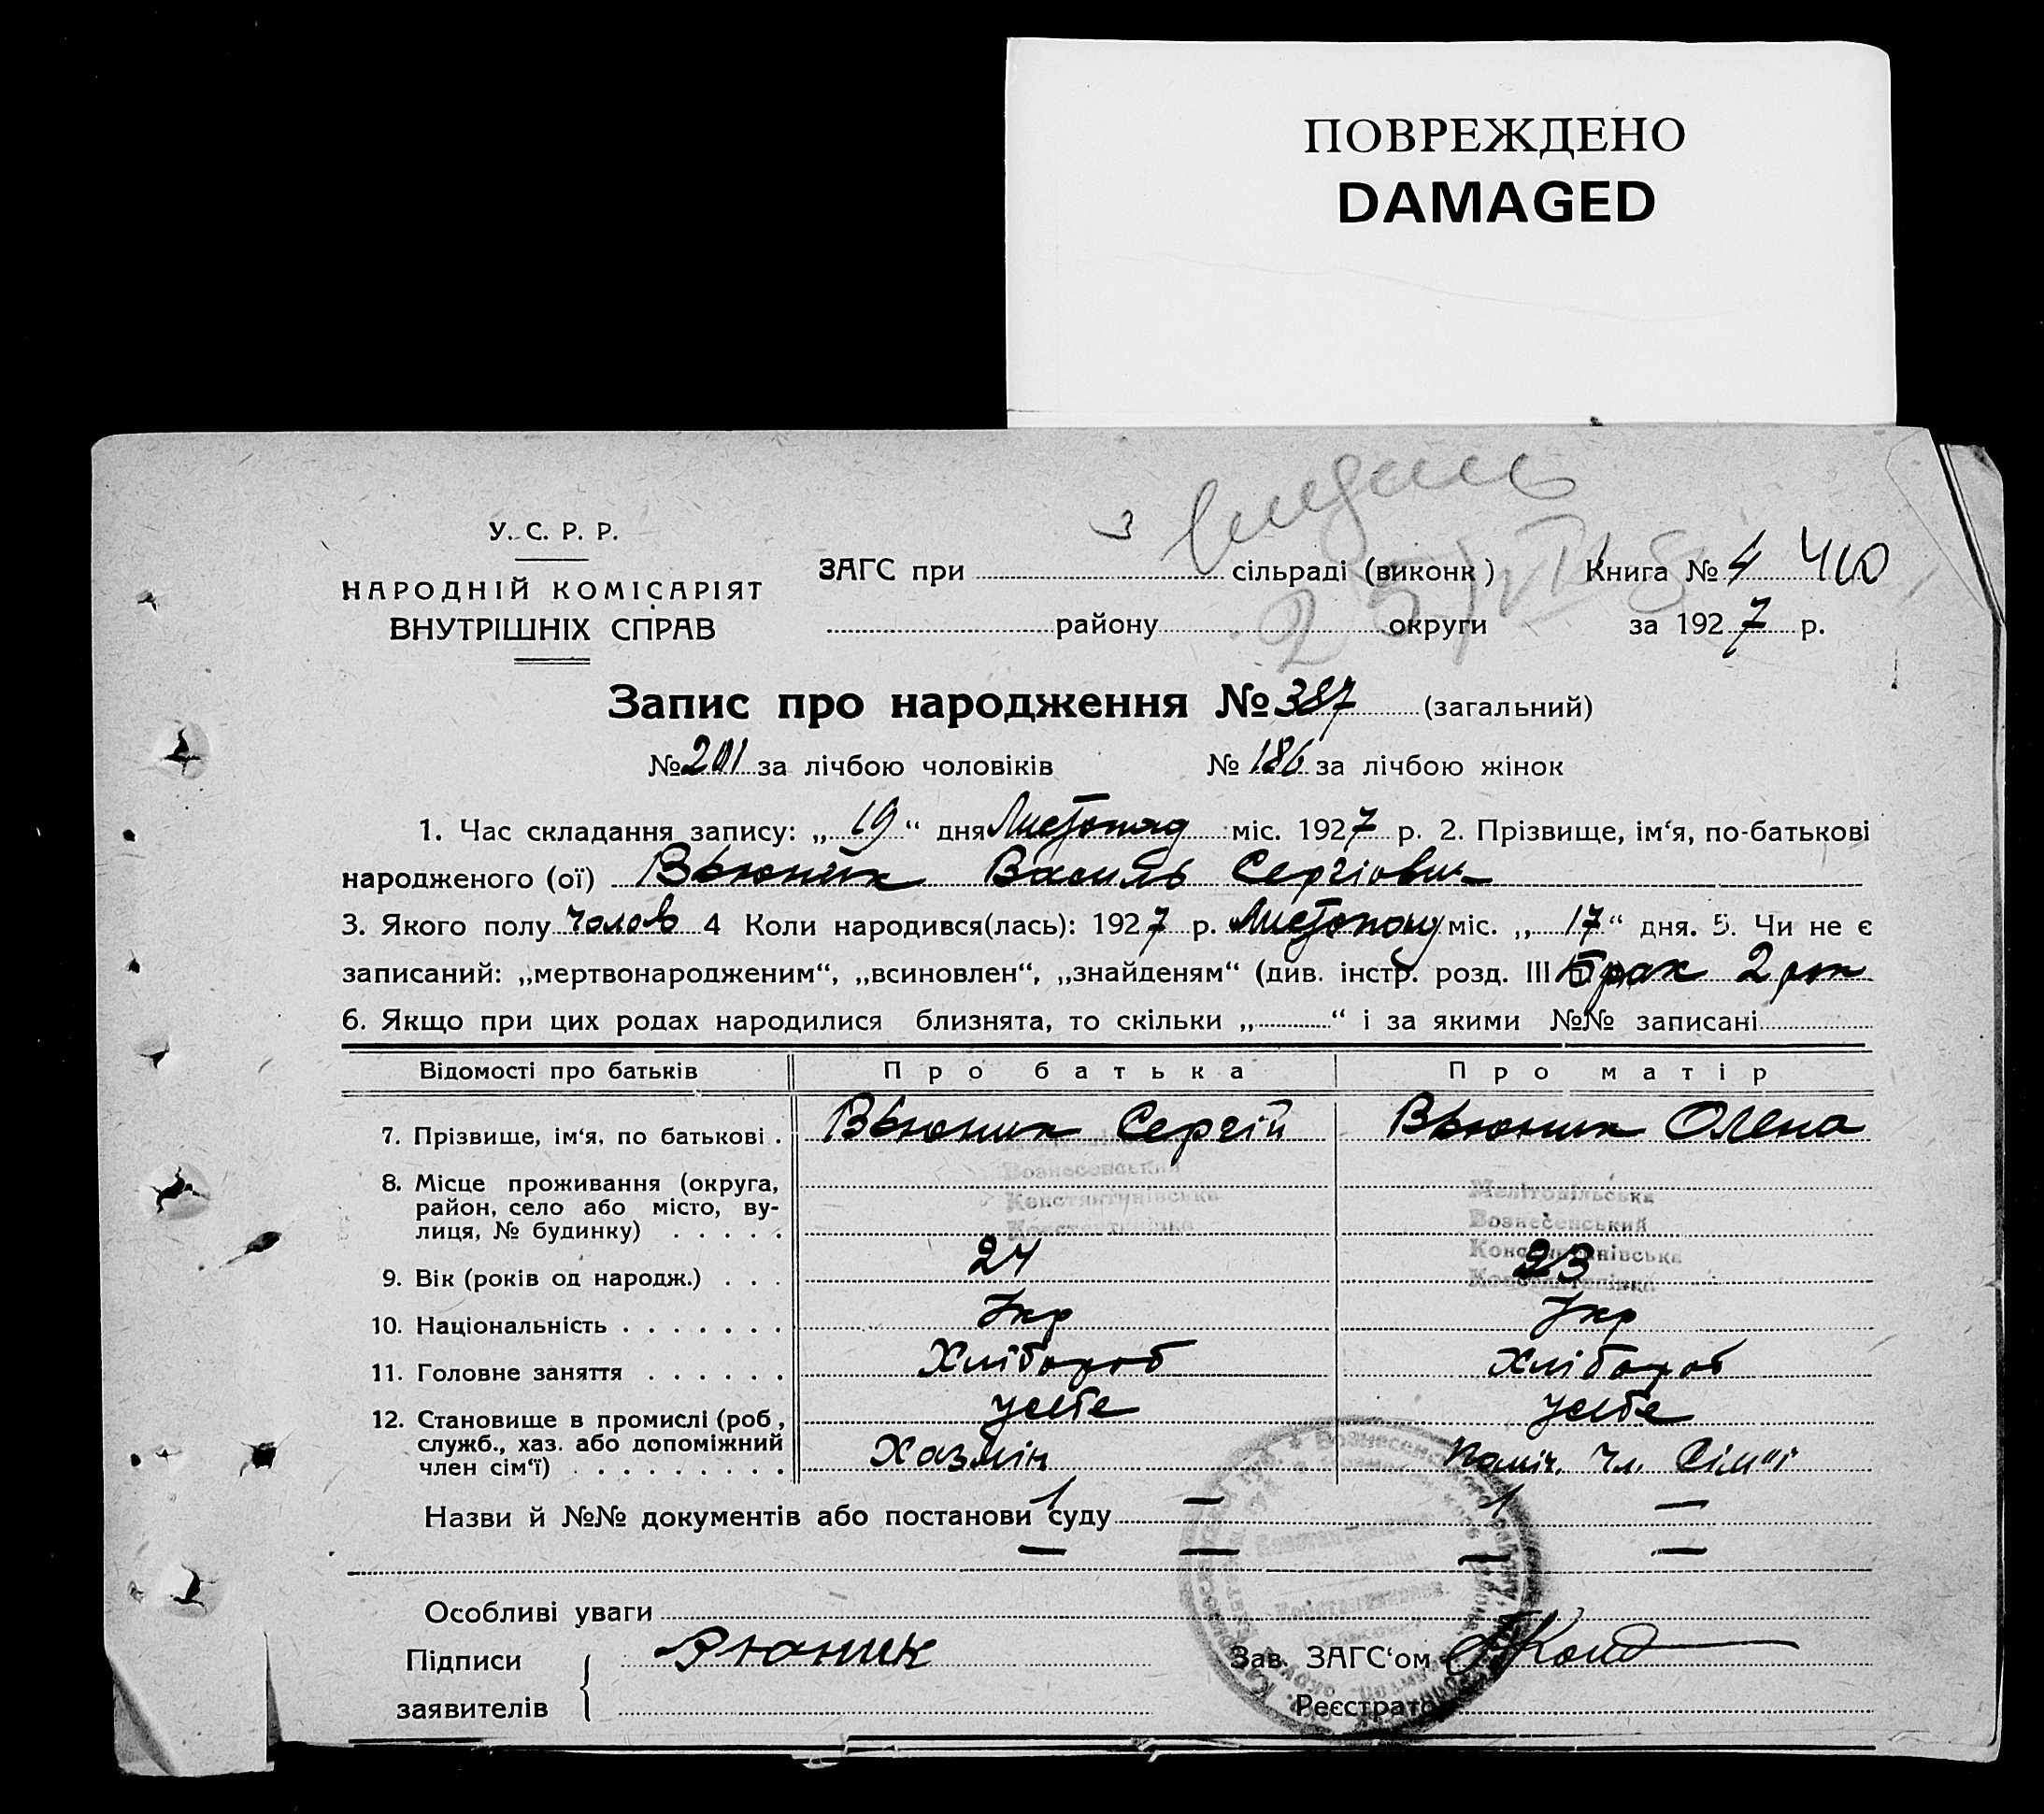 ПОВРЕЖДЕНО
DAMAGED
У. С. Р. Р.
НАРОДНІЙ КОМІСАРІЯТ
ВНУТРІШНІХ СПРАВ
ЗАГС при сільраді (виконк) Книга № 4
району округи за 1927 р.
Запис про народження № 387 (загальний)
№ 201 за лічбою чоловіків № 186 за лічбою жінок
1. Час складання запису: „19“ дня Листопад міс. 1927 р. 2. Прізвище, ім‘я, по-батькові
народженого (ої) Вьюник Василь Сергіович
3. Якого полу чолов 4 Коли народився(лась): 1927 р. Листопад міс. „17“ дня. 5. Чи не є
записаний: „мертвонародженим“, „всиновлен“, „знайденям“ (див. інстр. розд. III Брак 2 рок
6. Якщо при цих родах народилися близнята, то скільки „ “ і за якими №№ записані
Відомості про батьків Про батька Про матір
7. Прізвище, ім‘я, по батькові . Вьюник Сергій Вьюник Олена
8. Місце проживання (округа,
район, село або місто, ву-
лиця, № будинку) . . . . .
Вознесенський
Констянтинівська
Констянтинівка
Мелітопільська
Вознесенський
Констянтинівська
Констянтинівка
9. Вік (років од народж.) . . . 24 23
10. Національність . . . . . . . Укр Укр
11. Головне заняття . . . . . . Хлібороб Хлібороб
у себе у себе
12. Становище в промислі (роб,
служб., хаз. або допоміжний
член сім‘ї) . . . . . . . . . Хазяїн Поміч. Чл. Сімї
Назви й №№ документів або постанови суду 1 — 1 —
— — — —
Особливі уваги
Підписи
заявителів
Вюник
Зав. ЗАГС‘ом
Реєстратор